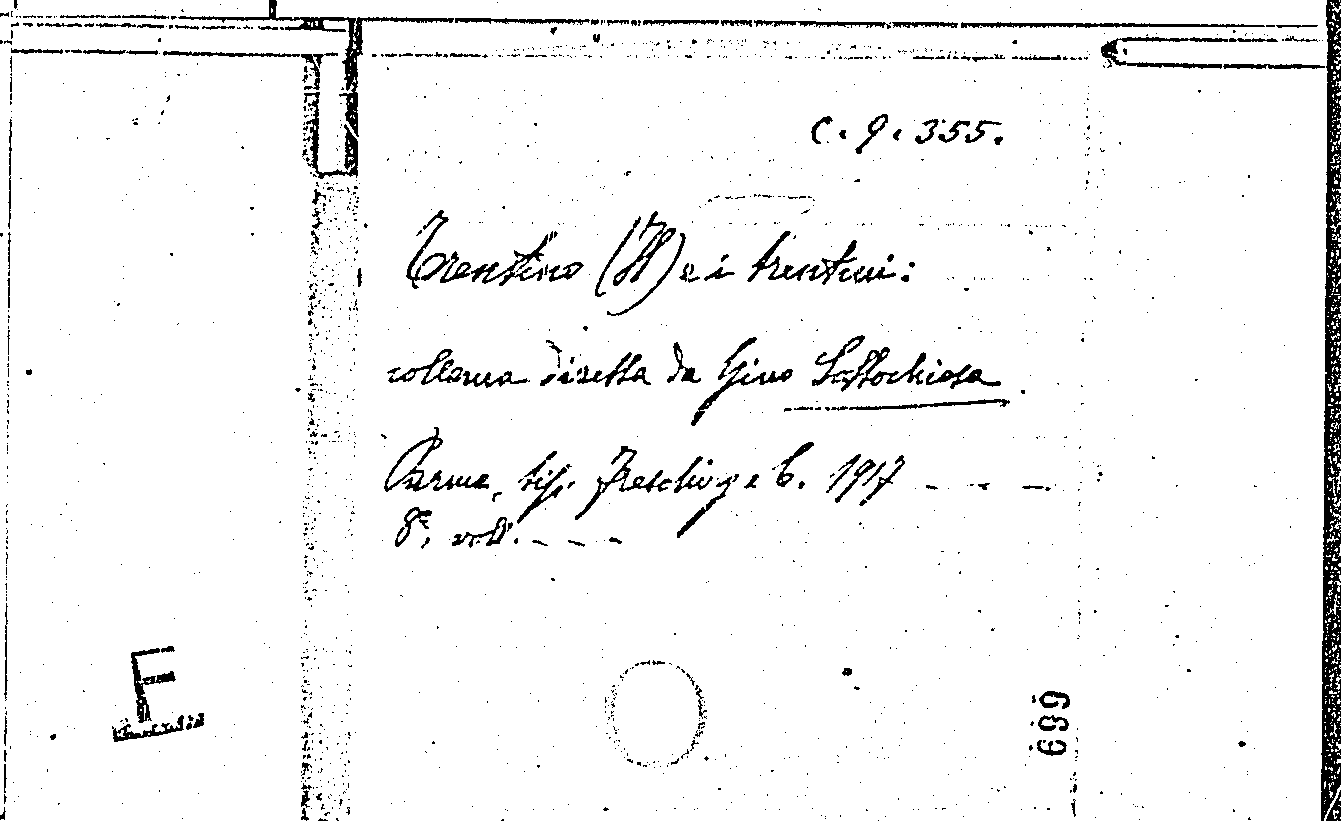 C. 9. 355.
Trentino (Il) e i trentini:
collana diretta da Gino
Parma, tip. Fresching e C. 1917 - - -
8º, voll. - - -
F
689